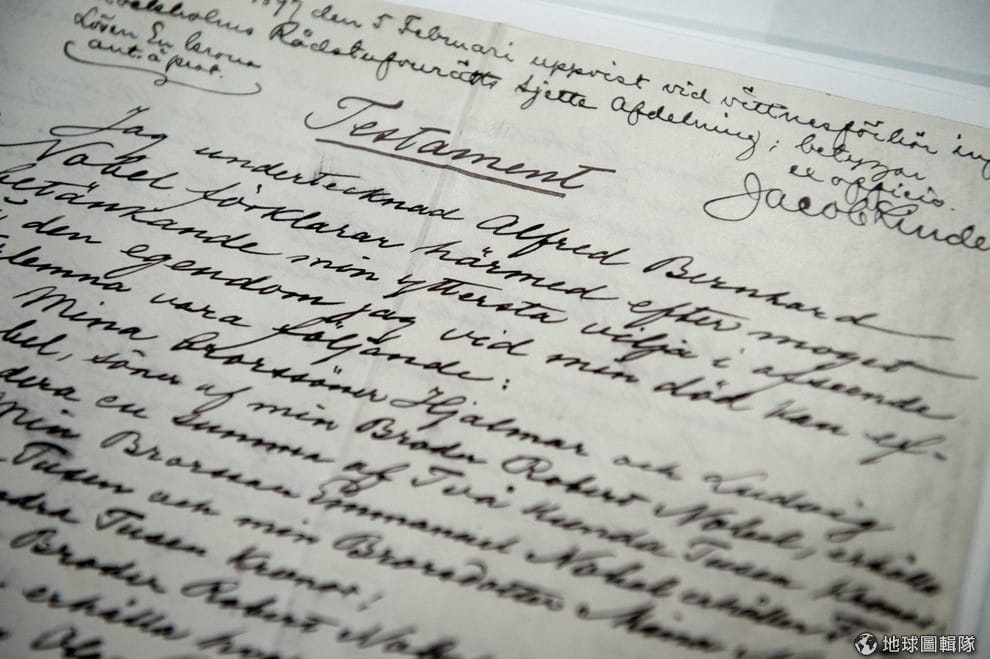 1897 den 5 Februari uppvist vid vittnesförhör inf
Stockholms Rådstufvurätts sjette Afdelning; betygar
ex officio.
Jacob Linde
Testament
Jag undertecknad Alfred Bernhard
Nobel förklarar härmed efter moget
betänkande min yttersta vilja i afseende
den egendom jag vid min död kan ef-
terlemna vara följande:
Mina Brorssöner Hjalmar och Ludvig
bel, söner af min Broder Robert Nobel, erhålla
dera en summa af Två Hundra Tusen Kronor
Min Brorson Emmanuel Nobel erhåller T
Tusen och min Brorsdotter Mina N
ndra Tusen Kronor;
Broder Robert Nob
erhålla h
地球圖輯隊